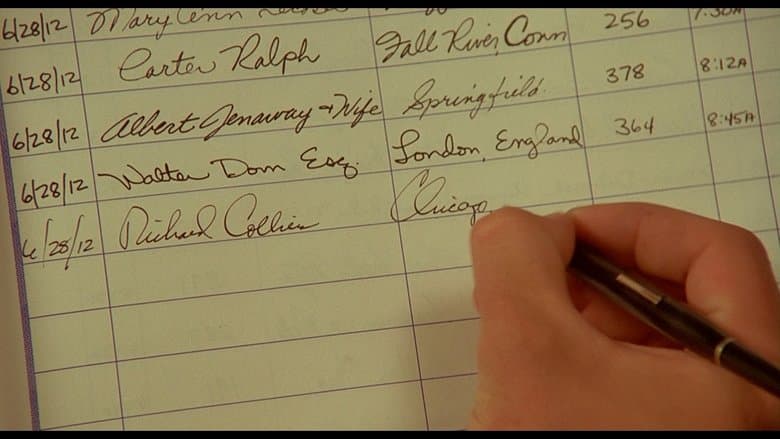 6/28/12 Mary Ann
6/28/12 Carter Ralph Fall River, Conn 256 7:30A
6/28/12 Albert Jenaway + Wife Springfield. 378 8:12A
6/28/12 Walter Dom Esq. London, England 364 8:45A
6/28/12 Richard Collier Chicago